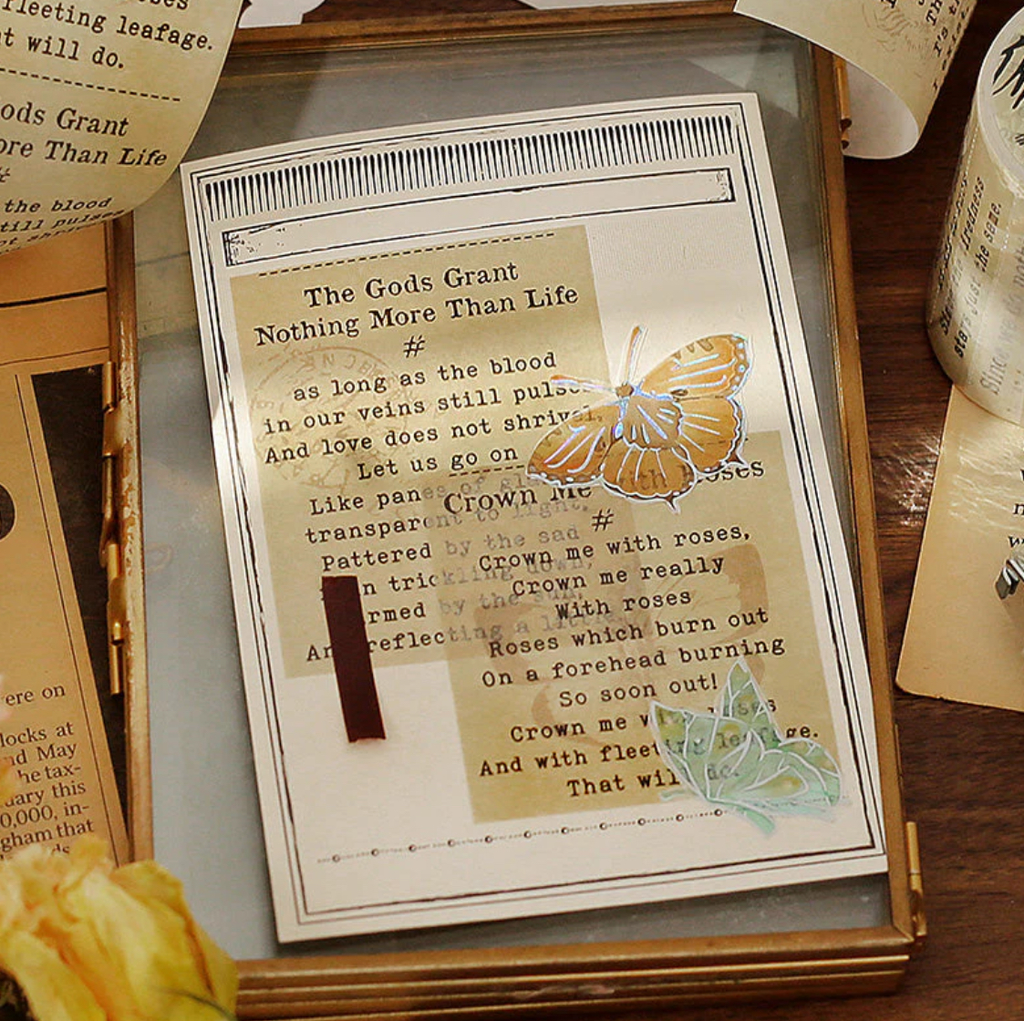 fleeting leafage.
t will do.
ods Grant
ore Than Life
#
the blood
still pulses
The Gods Grant
Nothing More Than Life
#
as long as the blood
in our veins still pulse
And love does not shrivel
Let us go on
Like panes of
transparent to light.
Pattered by the sad
n trickling down,
armed by the sun,
And reflecting a little
Crown Me with Roses
#
Crown me with roses,
Crown me really
With roses
Roses which burn out
On a forehead burning
So soon out!
Crown me with roses
And with fleeting leafage.
That will do.
ere on
locks at
nd May
he tax-
uary this
0,000, in-
gham that
stars just the same.